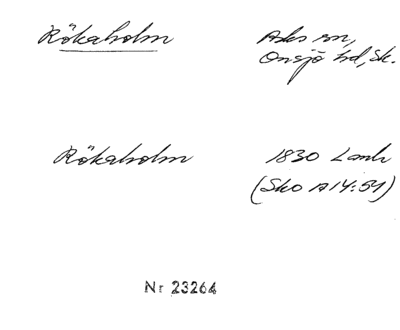 Rökaholm Asks sn,
Onsjö hd, Sk.
Rökaholm 1830 Lmh
(Sko A14:51)
Nr 23264